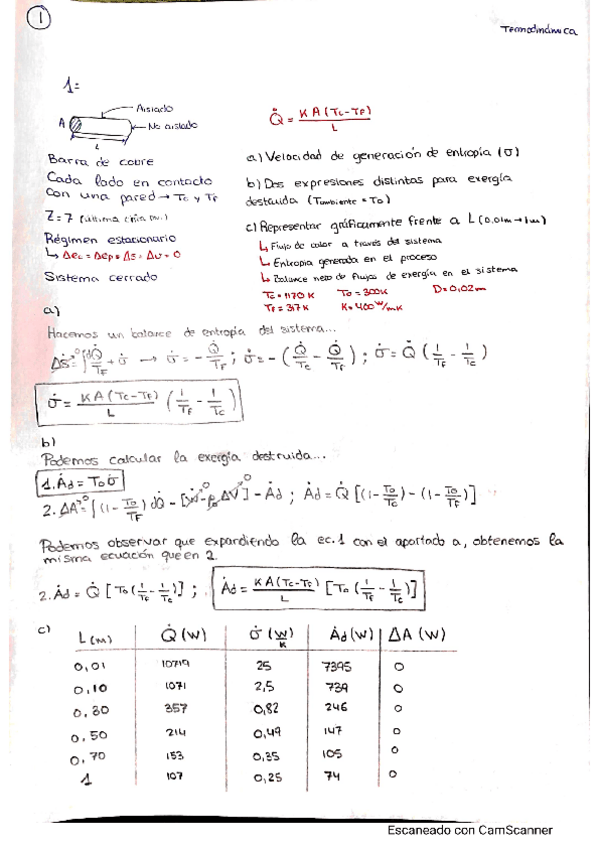 1
Termodinámica
1=
Aislado
A
No aislado
L
Q̇ = KA(Tc-TF) / L
Barra de cobre
Cada lado en contacto
con una pared → Tc y TF
Z=7 (última cifra)
Régimen estacionario
↳ Δec = Δep = Δs = Δu = 0
Sistema cerrado
a) Velocidad de generación de entropía (σ)
b) Dos expresiones distintas para exergía
destruida (Tambiente = To)
c) Representar gráficamente frente a L (0,01m → 1m)
↳ Flujo de calor a través del sistema
↳ Entropía generada en el proceso
↳ Balance neto de flujos de exergía en el sistema
Tc = 1170 K To = 300K D = 0,02m
TF = 317 K K = 400 W/mK
a)
Hacemos un balance de entropía del sistema...
ΔṠ⁰ = ∫dQ̇/TF + σ̇ → σ̇ = - Q̇/TF ; σ̇ = - (Q̇/Tc - Q̇/TF) ; σ̇ = Q̇ (1/TF - 1/Tc)
σ̇ = KA(Tc-TF)/L (1/TF - 1/Tc)
b)
Podemos calcular la exergía destruida...
1. Ȧd = To σ̇
2. ΔA⁰ = ∫(1 - To/TF) dQ̇ - [Ẇ⁰ - po ΔV⁰] - Ȧd ; Ȧd = Q̇ [(1 - To/Tc) - (1 - To/TF)]
Podemos observar que expandiendo la ec. 1 con el apartado a, obtenemos la
misma ecuación que en 2.
2. Ȧd = Q̇ [To (1/TF - 1/Tc)] ; Ȧd = KA(Tc-TF)/L [To (1/TF - 1/Tc)]
c)
L (m) Q̇ (W) σ̇ (W/K) Ȧd (W) ΔA (W)
0,01 10719 25 7395 0
0,10 1071 2,5 739 0
0,30 357 0,82 246 0
0,50 214 0,49 147 0
0,70 153 0,35 105 0
1 107 0,25 74 0
Escaneado con CamScanner